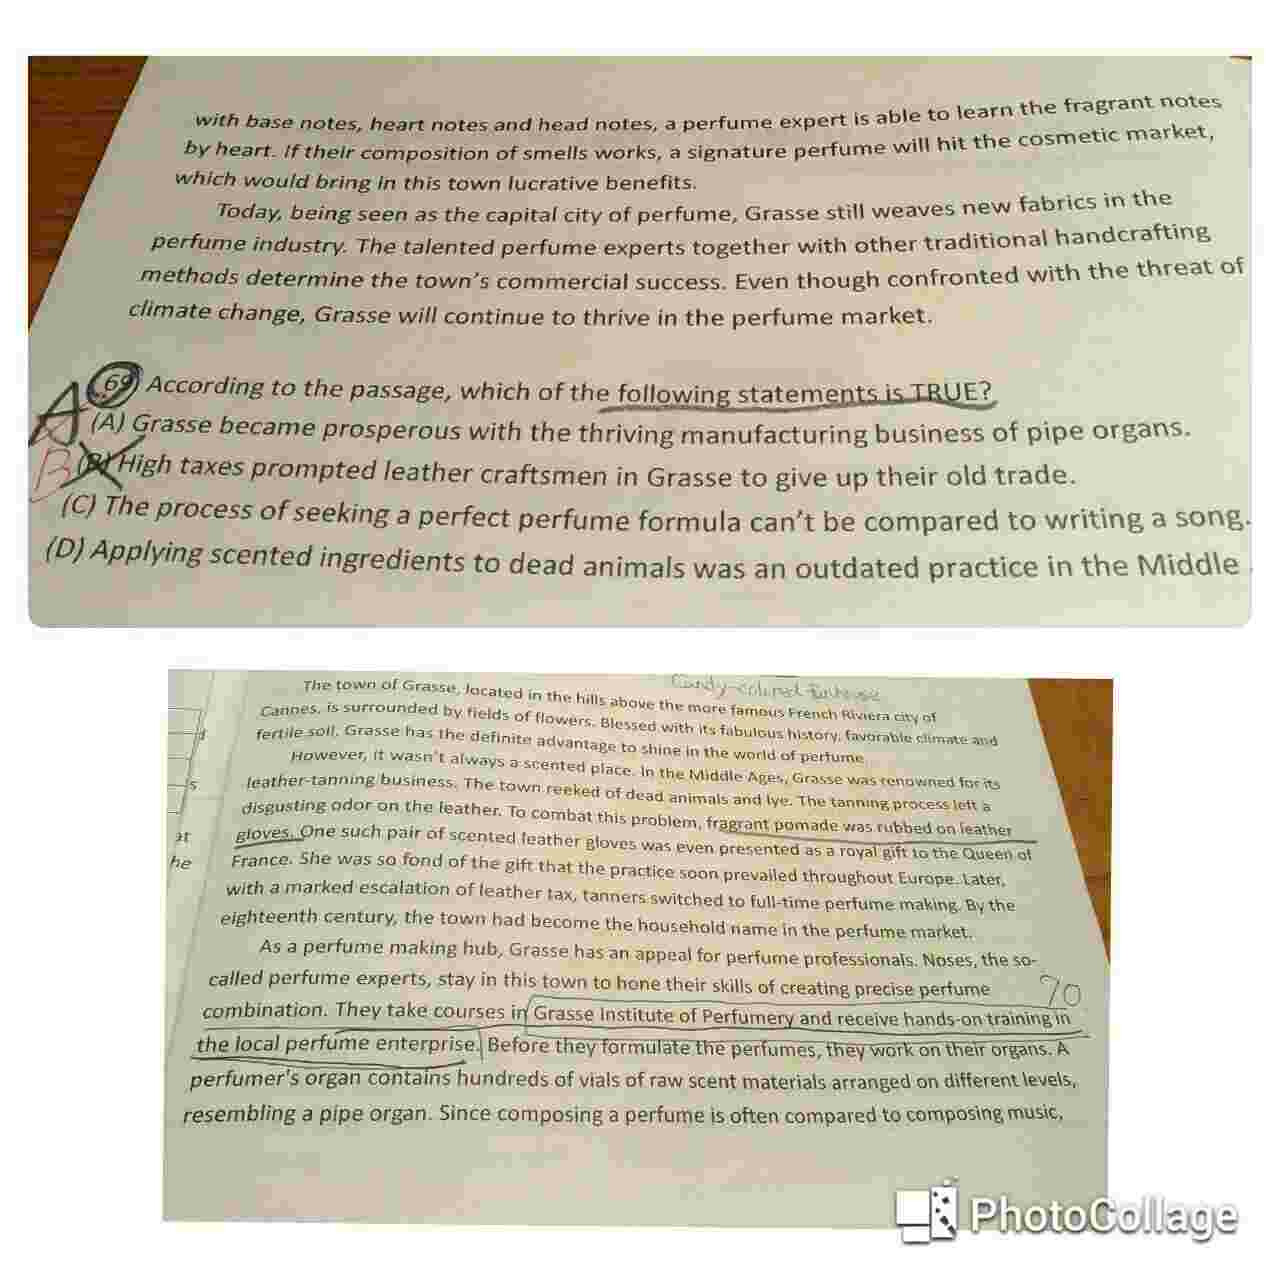 with base notes, heart notes and head notes, a perfume expert is able to learn the fragrant notes
by heart. If their composition of smells works, a signature perfume will hit the cosmetic market,
which would bring in this town lucrative benefits.
Today, being seen as the capital city of perfume, Grasse still weaves new fabrics in the
perfume industry. The talented perfume experts together with other traditional handcrafting
methods determine the town's commercial success. Even though confronted with the threat of
climate change, Grasse will continue to thrive in the perfume market.
A 69 According to the passage, which of the following statements is TRUE?
(A) Grasse became prosperous with the thriving manufacturing business of pipe organs.
B (B) High taxes prompted leather craftsmen in Grasse to give up their old trade.
(C) The process of seeking a perfect perfume formula can't be compared to writing a song.
(D) Applying scented ingredients to dead animals was an outdated practice in the Middle
Candy-colored
The town of Grasse, located in the hills above the more famous French Riviera city of
Cannes, is surrounded by fields of flowers. Blessed with its fabulous history, favorable climate and
fertile soil, Grasse has the definite advantage to shine in the world of perfume
However, it wasn't always a scented place. In the Middle Ages, Grasse was renowned for its
leather-tanning business. The town reeked of dead animals and lye. The tanning process left a
disgusting odor on the leather. To combat this problem, fragrant pomade was rubbed on leather
gloves. One such pair of scented leather gloves was even presented as a royal gift to the Queen of
France. She was so fond of the gift that the practice soon prevailed throughout Europe. Later,
with a marked escalation of leather tax, tanners switched to full-time perfume making. By the
eighteenth century, the town had become the household name in the perfume market.
As a perfume making hub, Grasse has an appeal for perfume professionals. Noses, the so-
called perfume experts, stay in this town to hone their skills of creating precise perfume
70
combination. They take courses in Grasse Institute of Perfumery and receive hands-on training in
the local perfume enterprise. Before they formulate the perfumes, they work on their organs. A
perfumer's organ contains hundreds of vials of raw scent materials arranged on different levels,
resembling a pipe organ. Since composing a perfume is often compared to composing music,
s
at
he
PhotoCollage